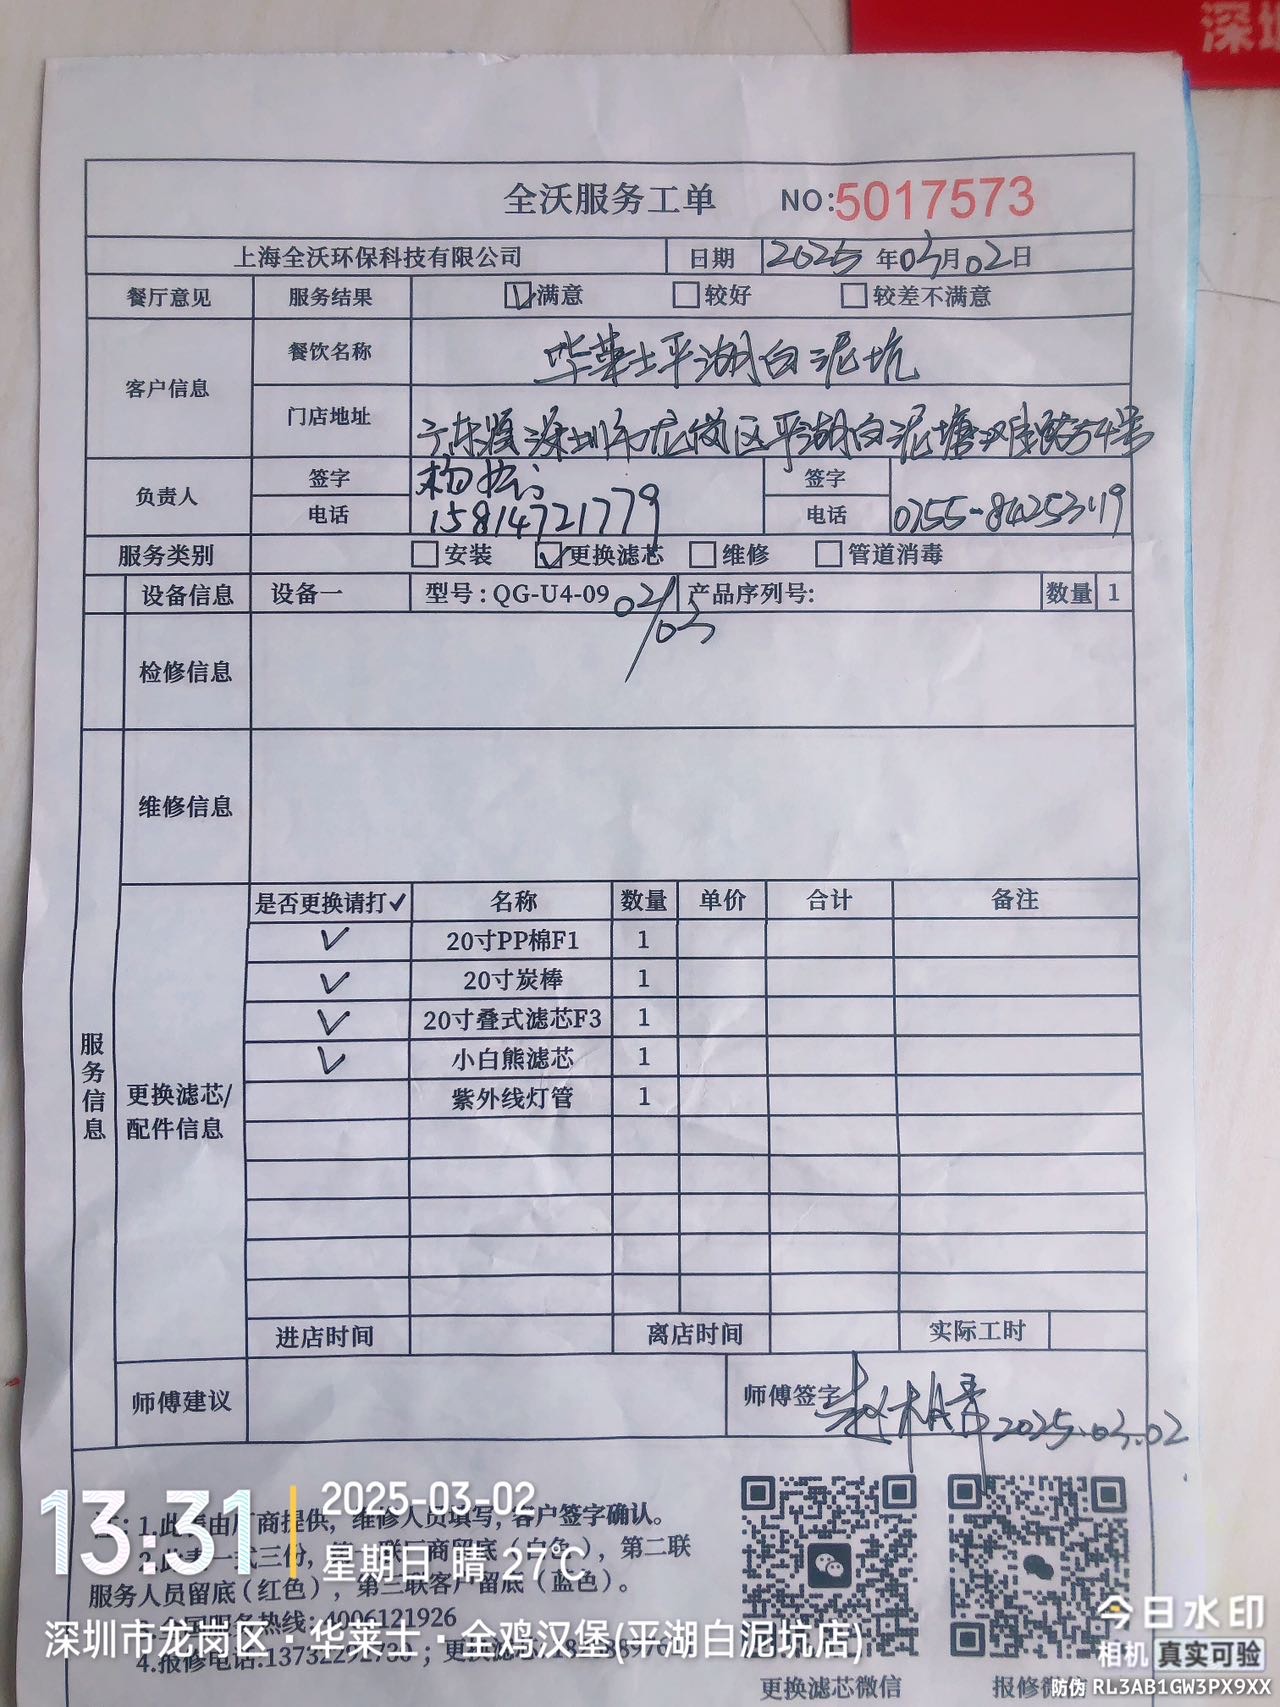 深圳
全沃服务工单 NO:5017573
上海全沃环保科技有限公司 日期 2025年03月02日
餐厅意见 服务结果 ☑满意 □较好 □较差不满意
客户信息 餐饮名称 华莱士平湖白泥坑
门店地址 广东省深圳市龙岗区平湖白泥塘 路54号
负责人 签字 杨 签字
电话 15814721779 电话 0755-84253419
服务类别 □安装 ☑更换滤芯 □维修 □管道消毒
设备信息 设备一 型号:QG-U4-09 02/03 产品序列号: 数量 1
检修信息
维修信息
服务信息
更换滤芯/配件信息
是否更换请打✓ 名称 数量 单价 合计 备注
✓ 20寸PP棉F1 1
✓ 20寸炭棒 1
✓ 20寸叠式滤芯F3 1
✓ 小白熊滤芯 1
紫外线灯管 1
进店时间 离店时间 实际工时
师傅建议 师傅签字 赵 2025.03.02
注:1.此表由厂商提供,维修人员填写,客户签字确认。
2.此表一式三份,第一联厂商留底(白色),第二联
服务人员留底(红色),第三联客户留底(蓝色)。
3.全国服务热线:4006121926
4.报修电话:13732292730;更换滤芯
更换滤芯微信 报修微信
13:31 2025-03-02
星期日 晴 27℃
深圳市龙岗区·华莱士·全鸡汉堡(平湖白泥坑店)
今日水印
相机 真实可验
防伪 RL3AB1GW3PX9XX